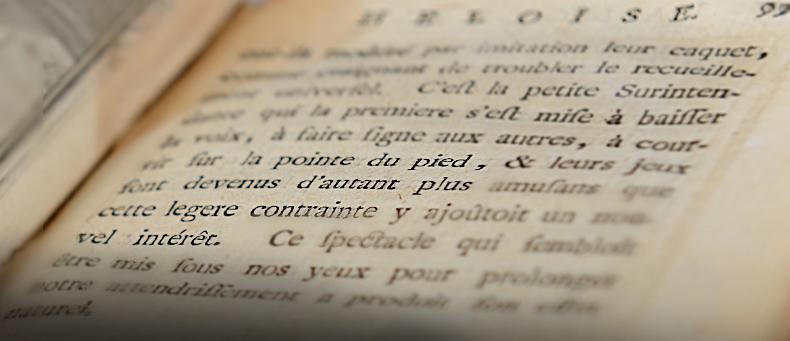 HELOISE 99
ont-ils modéré par imitation leur caquet,
comme craignant de troubler le recueille-
ment universel. C'eſt la petite Surinten-
dance qui la premiere s'eſt miſe à baiſſer
la voix, à faire ſigne aux autres, à cour-
rir ſur la pointe du pied, & leurs jeux
ſont devenus d'autant plus amuſans que
cette legere contrainte y ajoûtoit un nou-
vel intérêt. Ce ſpectacle qui ſembloit
être mis ſous nos yeux pour prolonger
notre attendriſſement a produit ſon effet
naturel.